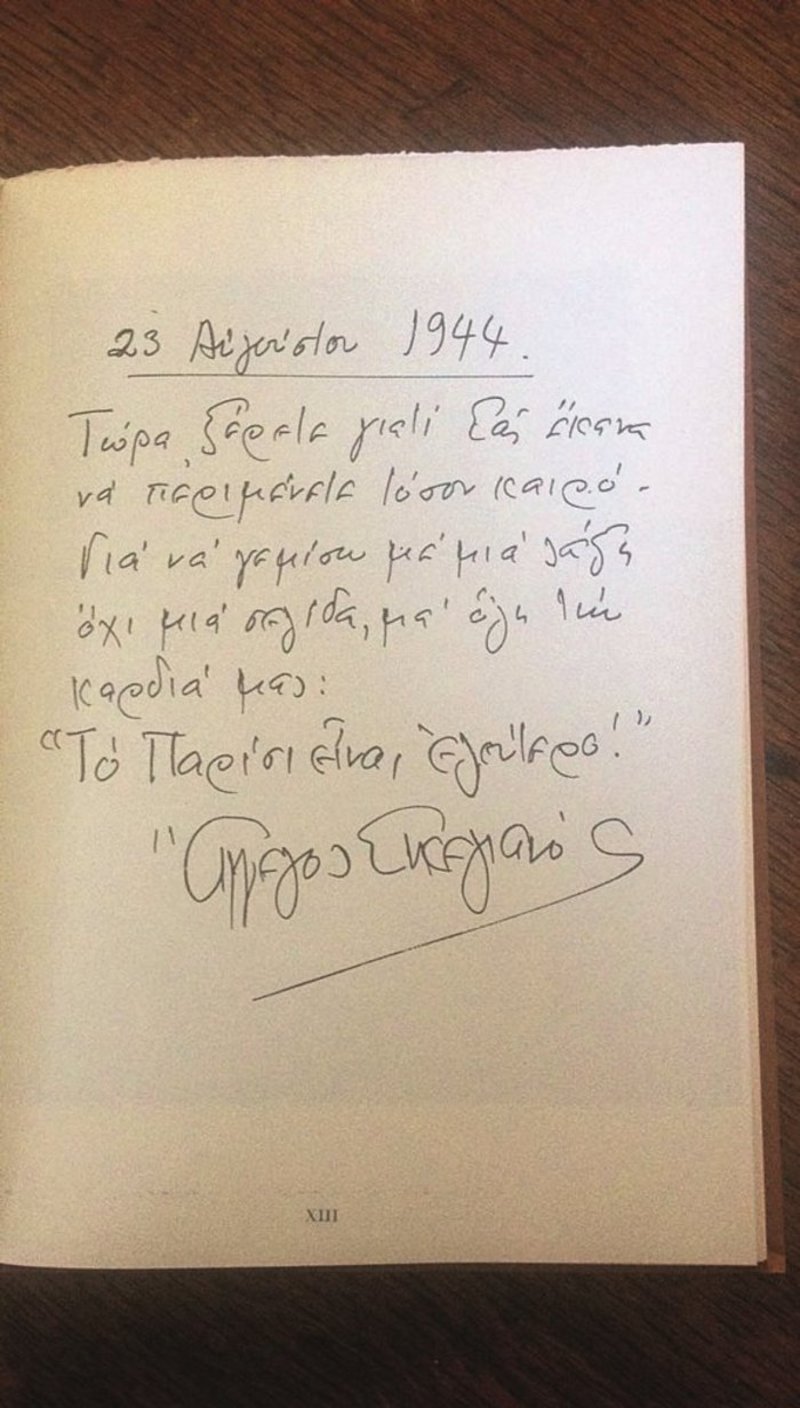 23 Αὐγούστου 1944.
Τώρα ξέρετε γιατί Σᾶς ἔκανα
νά περιμένετε τόσον καιρό -
Γιά νά γεμίσω μέ μιά λέξη
ὄχι μιά σελίδα, μά ὅλη τήν
καρδιά μας:
“Τό Παρίσι εἶναι ἐλεύτερο!”
Ἄγγελος Σικελιανός
XIII